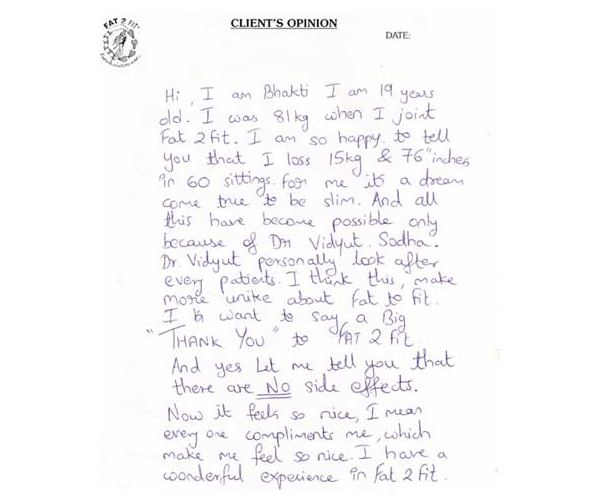 FAT 2 FIT
CLIENT'S OPINION
DATE:
Hi, I am Bhakti I am 19 years
old. I was 81kg when I joint
Fat 2 fit. I am so happy. to tell
you that I loss 15kg & 76"inches
in 60 sittings. for me its a dream
come true to be slim. And all
this have become possible only
because of Dr. Vidyut. Sodha.
Dr. Vidyut personally look after
every patients. I think this, make
more unike about fat to fit.
I want to say a Big
"THANK YOU" to FAT 2 fit.
And yes Let me tell you that
there are NO side effects.
Now it feels so nice, I mean
every one compliments me, which
make me feel so nice. I have a
wonderful experience in Fat 2 fit.